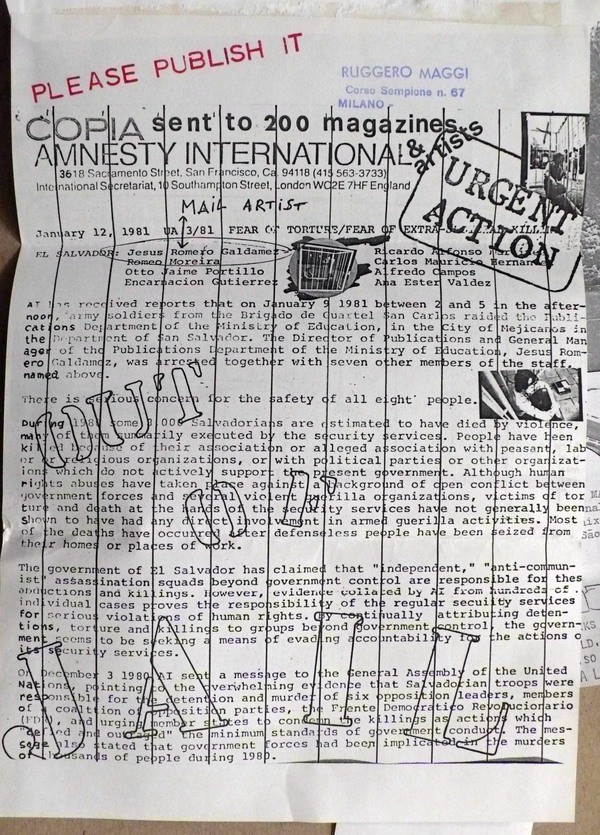 PLEASE PUBLISH IT
RUGGERO MAGGI
Corso Sempione n. 67
MILANO
COPIA sent to 200 magazines
& artists
AMNESTY INTERNATIONAL
URGENT
ACTION
3618 Sacramento Street, San Francisco, Ca. 94118 (415 563-3733)
International Secretariat, 10 Southampton Street, London WC2E 7HF England
MAIL ARTIST
January 12, 1981 UA 3/81 FEAR OF TORTURE/FEAR OF
EL SALVADOR: Jesus Romero Galdamez Ricardo Alfonso
Romeo Moreira Carlos Mauricio
Otto Jaime Portillo Alfredo Campos
Encarnacion Gutierrez Ana Ester Valdez
AI has received reports that on January 9 1981 between 2 and 5 in the after-
noon, army soldiers from the Brigado de Cuartel San Carlos raided the Publi-
cations Department of the Ministry of Education, in the City of Mejicanos in
the Department of San Salvador. The Director of Publications and General Man
ager of the Publications Department of the Ministry of Education, Jesus Rom-
ero Galdamez, was arrested together with seven other members of the staff,
named above.
There is serious concern for the safety of all eight people.
During some Salvadorians are estimated to have died by violence,
many of them summarily executed by the security services. People have been
killed because of their association or alleged association with peasant, lab
or or religious organizations, or with political parties or other organizat-
ions which do not actively support the present government. Although human
rights abuses have taken place against a background of open conflict between
government forces and several violent guerilla organizations, victims of tor
ture and death at the hands of the security services have not generally been
shown to have had any direct involvement in armed guerilla activities. Most
of the deaths have occured after defenseless people have been seized from
their homes or places of work.
The government of El Salvador has claimed that "independent," "anti-commun-
ist" assassination squads beyond government control are responsible for thes
abductions and killings. However, evidence collated by AI from hundreds of
individual cases proves the responsibility of the regular secuity services
for serious violations of human rights. By continually attributing deten-
tions, torture and killings to groups beyond government control, the govern-
ment seems to be seeking a means of evading accountability for the actions o
its security services.
On December 3 1980 AI sent a message to the General Assembly of the United
Nations, pointing to the overwhelming evidence that Salvadorian troops were
responsible for the detention and murder of six opposition leaders, members
of a coalition of opposition parties, the Frente Democratico Revolucionario
(FDR), and urging member states to condemn the killings as action which
"defied and outraged" the minimum standards of government conduct. The mes-
sage also stated that government forces had been implicated in the murders
of thousands of people during 1980.
OUT
OF
JAIL